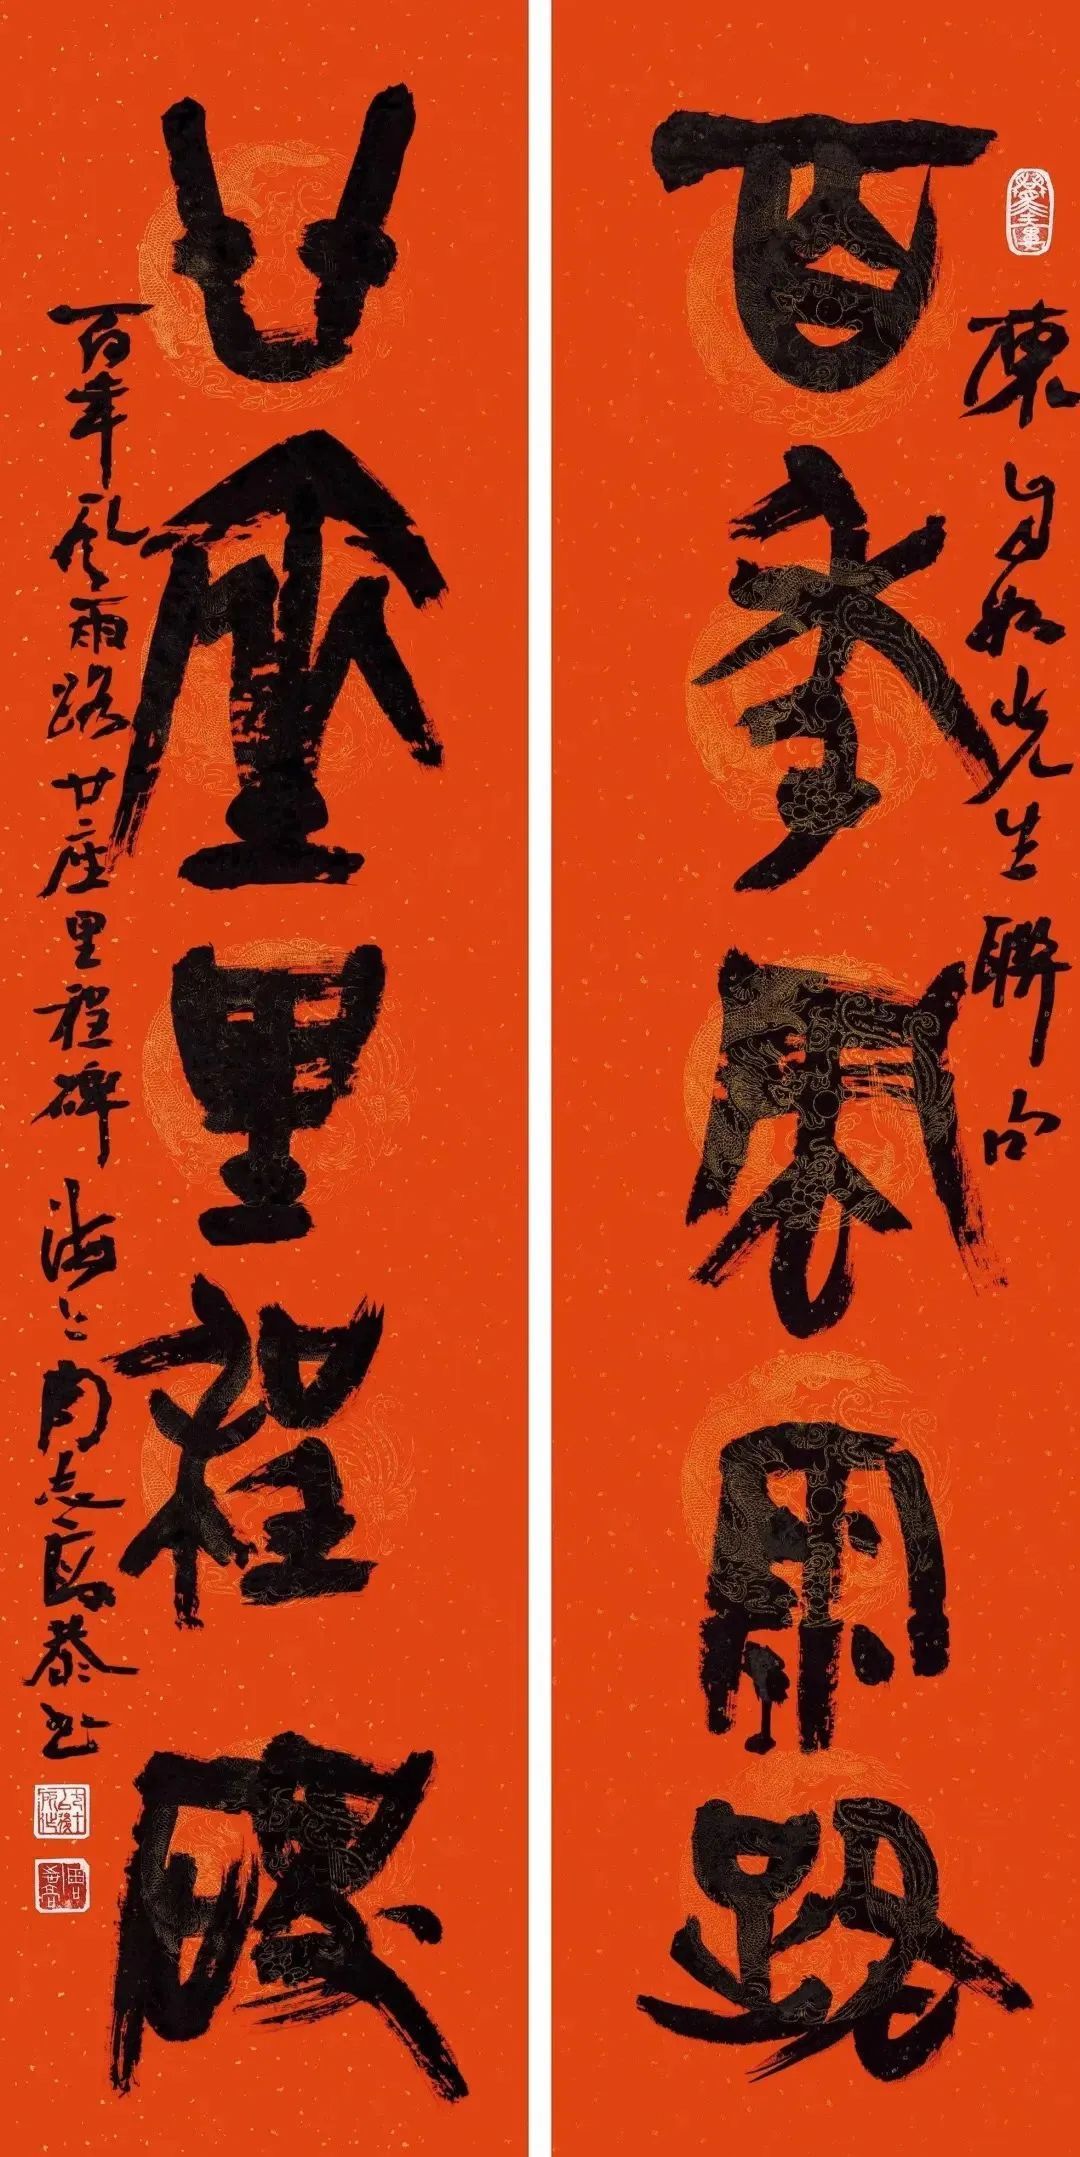 陳先生聯句
百年風雨路
廿座里程碑
百年風雨路廿座里程碑海上周志高恭书